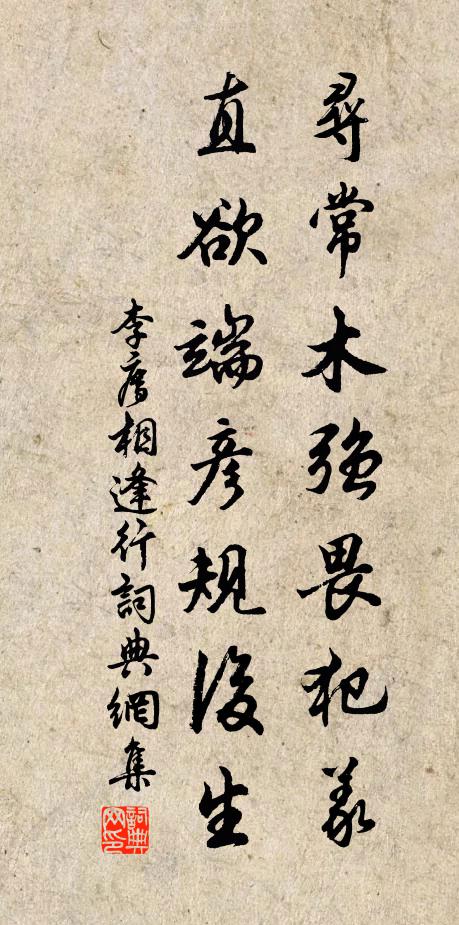 尋常木強畏犯義
直欲端彦規後生
李廌相逢行詞典網集
詞典网印